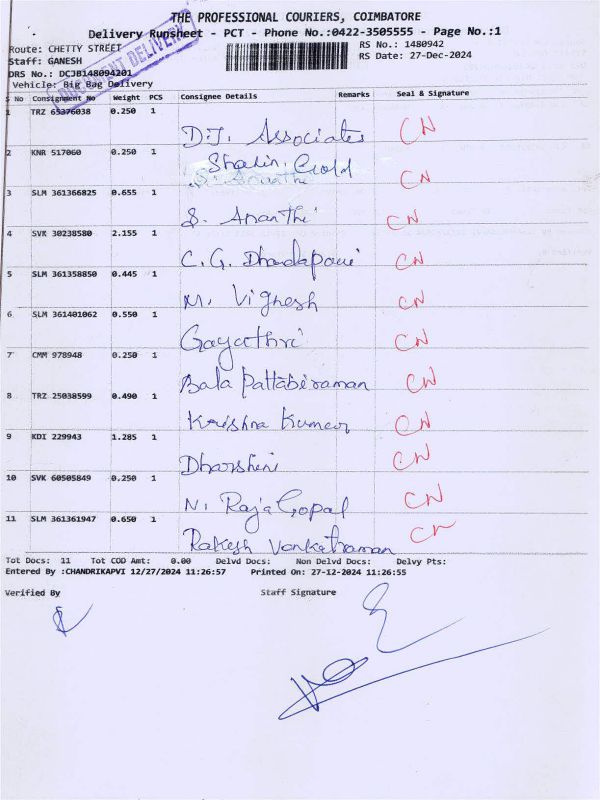 THE PROFESSIONAL COURIERS, COIMBATORE
Delivery Runsheet - PCT - Phone No.:0422-3505555 - Page No.:1
Route: CHETTY STREET
RS No.: 1480942
Staff: GANESH
RS Date: 27-Dec-2024
DRS No.: DCJB148094201
Vehicle: Big Bag Delivery
DOCUMENT DELIVERY
S No Consignment No Weight PCS Consignee Details Remarks Seal & Signature
1 TRZ 65376038 0.250 1
D.J. Associates CN
2 KNR 517060 0.250 1
Gold CN
S. Ananthi
3 SLM 361366825 0.655 1
S. Ananthi CN
4 SVK 30238580 2.155 1
C.G. Dhandapani CN
5 SLM 361358850 0.445 1
M. Vignesh CN
6 SLM 361401062 0.550 1
Gayathri CN
7 CMM 978948 0.250 1
Bala Pattabiraman CN
8 TRZ 25038599 0.490 1
Krishna Kumar CN
9 KDI 229943 1.285 1
Dharshini CN
10 SVK 60505849 0.250 1
N. RajaGopal CN
11 SLM 361361947 0.650 1
Rakesh Venkatraman CN
Tot Docs: 11 Tot COD Amt: 0.00 Delvd Docs: Non Delvd Docs: Delvy Pts:
Entered By :CHANDRIKAPVI 12/27/2024 11:26:57 Printed On: 27-12-2024 11:26:55
Verified By Staff Signature